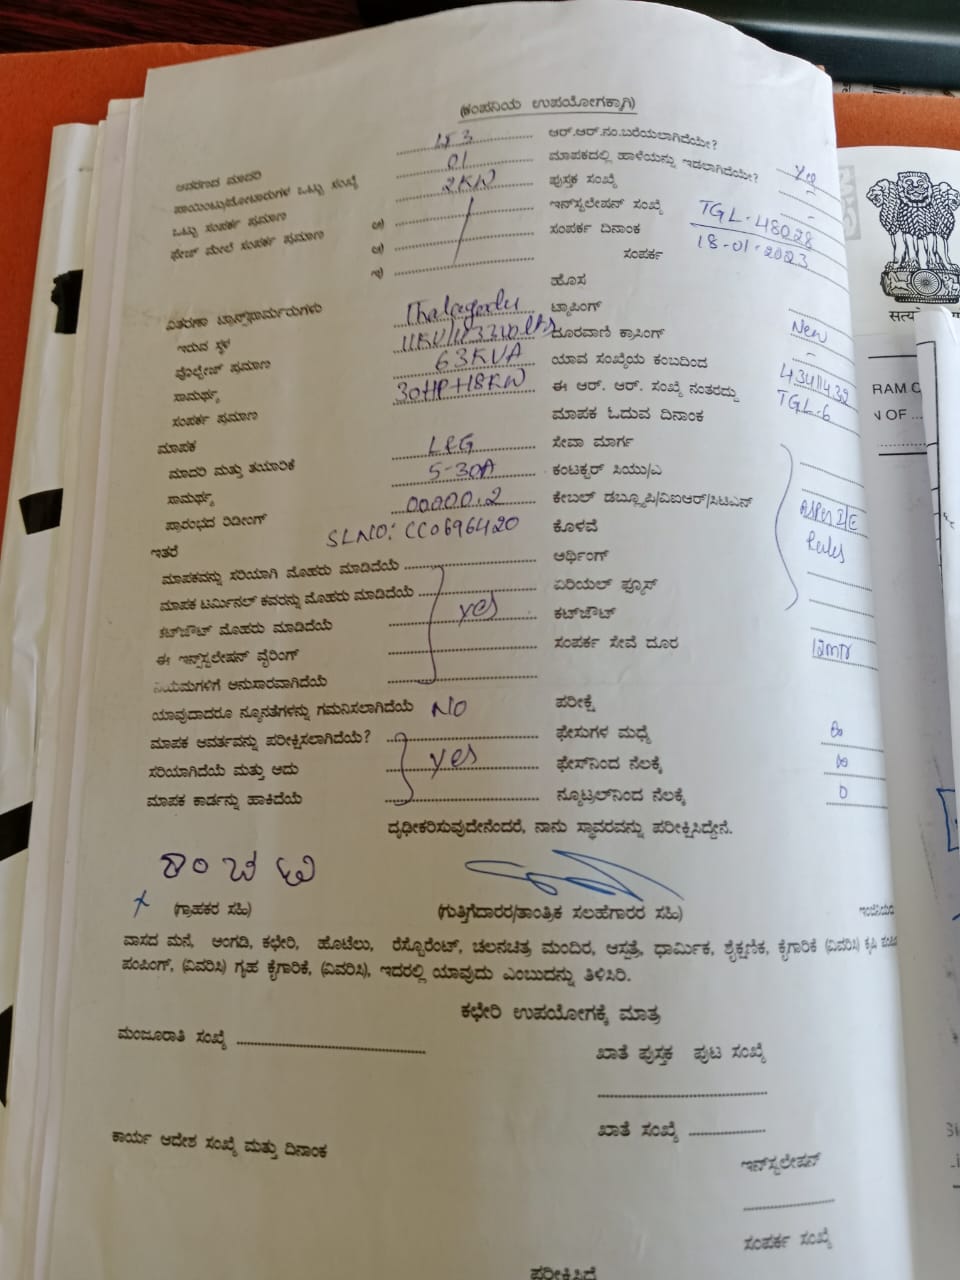 (ಕಂಪನಿಯ ಉಪಯೋಗಕ್ಕಾಗಿ)
ಆವರಣದ ಮಾದರಿ ಆರ್.ಆರ್.ನಂ.ಬರೆಯಲಾಗಿದೆಯೇ? Yes
ಪಾಯಿಂಟ್ಸು/ಮೋಟಾರುಗಳ ಒಟ್ಟು ಸಂಖ್ಯೆ 01 ಮಾಪಕದಲ್ಲಿ ಹಾಳೆಯನ್ನು ಇಡಲಾಗಿದೆಯೇ? -
ಒಟ್ಟು ಸಂಪರ್ಕ ಪ್ರಮಾಣ 2KW ಪುಸ್ತಕ ಸಂಖ್ಯೆ -
ಫೇಜ್ ಮೇಲೆ ಸಂಪರ್ಕ ಪ್ರಮಾಣ ಇನ್‌ಸ್ಟಲೇಷನ್ ಸಂಖ್ಯೆ TGL-48028
ಸಂಪರ್ಕ ದಿನಾಂಕ 18-01-2023
ಸಂಪರ್ಕ
ಹೊಸ New
ವಿತರಣಾ ಟ್ರಾನ್ಸ್‌ಫಾರ್ಮರುಗಳು ಟ್ಯಾಪಿಂಗ್ -
ಇರುವ ಸ್ಥಳ Thalagodu ದೂರವಾಣಿ ಕ್ರಾಸಿಂಗ್
ವೋಲ್ಟೇಜ್ ಪ್ರಮಾಣ ಯಾವ ಸಂಖ್ಯೆಯ ಕಂಬದಿಂದ
ಸಾಮರ್ಥ್ಯ 63KVA ಈ ಆರ್. ಆರ್. ಸಂಖ್ಯೆ ನಂತರದ್ದು TGL-6
ಸಂಪರ್ಕ ಪ್ರಮಾಣ 30HP+18KW ಮಾಪಕ ಓದುವ ದಿನಾಂಕ
ಮಾಪಕ ಸೇವಾ ಮಾರ್ಗ
ಮಾದರಿ ಮತ್ತು ತಯಾರಿಕೆ L&G ಕಂಟಕ್ಟರ್ ಸಿಯು/ಎ
ಸಾಮರ್ಥ್ಯ 5-30A ಕೇಬಲ್ ಡಬ್ಲ್ಯೂಪಿ/ವಿಐಆರ್/ಸಿಟಿಎಸ್ As per I/E
ಪ್ರಾರಂಭದ ರಿಡೀಂಗ್ 00000.2 ಕೊಳವೆ Rules
ಇತರೆ SLNO: CC0696420 ಅರ್ಥಿಂಗ್
ಮಾಪಕವನ್ನು ಸರಿಯಾಗಿ ಮೊಹರು ಮಾಡಿದೆಯೆ ಏರಿಯಲ್ ಫ್ಯೂಸ್
ಮಾಪಕ ಟರ್ಮಿನಲ್ ಕವರನ್ನು ಮೊಹರು ಮಾಡಿದೆಯೆ yes ಕಟ್‌ಔಟ್
ಕಟ್‌ಔಟ್ ಮೊಹರು ಮಾಡಿದೆಯೆ ಸಂಪರ್ಕ ಸೇವೆ ದೂರ 12mtr
ಈ ಇನ್ಸ್‌ಟಲೇಷನ್ ವೈರಿಂಗ್
ನಿಯಮಗಳಿಗೆ ಅನುಸಾರವಾಗಿದೆಯೆ
ಯಾವುದಾದರೂ ನ್ಯೂನತೆಗಳನ್ನು ಗಮನಿಸಲಾಗಿದೆಯೆ NO ಪರೀಕ್ಷೆ
ಮಾಪಕ ಆವರ್ತವನ್ನು ಪರೀಕ್ಷಿಸಲಾಗಿದೆಯೆ? ಫೇಸುಗಳ ಮಧ್ಯೆ ∞
ಸರಿಯಾಗಿದೆಯೆ ಮತ್ತು ಅದು yes ಫೇಸ್‌ನಿಂದ ನೆಲಕ್ಕೆ ∞
ಮಾಪಕ ಕಾರ್ಡನ್ನು ಹಾಕಿದೆಯೆ ನ್ಯೂಟ್ರಲ್‌ನಿಂದ ನೆಲಕ್ಕೆ 0
ದೃಢೀಕರಿಸುವುದೇನೆಂದರೆ, ನಾನು ಸ್ಥಾವರವನ್ನು ಪರೀಕ್ಷಿಸಿದ್ದೇನೆ.
(ಗ್ರಾಹಕರ ಸಹಿ) (ಗುತ್ತಿಗೆದಾರರ/ತಾಂತ್ರಿಕ ಸಲಹೆಗಾರರ ಸಹಿ)
ವಾಸದ ಮನೆ, ಅಂಗಡಿ, ಕಛೇರಿ, ಹೊಟೆಲು, ರೆಸ್ಟೊರೆಂಟ್, ಚಲನಚಿತ್ರ ಮಂದಿರ, ಆಸ್ಪತ್ರೆ, ಧಾರ್ಮಿಕ, ಶೈಕ್ಷಣಿಕ, ಕೈಗಾರಿಕೆ (ವಿವರಿಸಿ) ಕೃಷಿ
ಪಂಪಿಂಗ್, (ವಿವರಿಸಿ) ಗೃಹ ಕೈಗಾರಿಕೆ, (ವಿವರಿಸಿ), ಇದರಲ್ಲಿ ಯಾವುದು ಎಂಬುದನ್ನು ತಿಳಿಸಿರಿ.
ಕಛೇರಿ ಉಪಯೋಗಕ್ಕೆ ಮಾತ್ರ
ಮಂಜೂರಾತಿ ಸಂಖ್ಯೆ
ಖಾತೆ ಪುಸ್ತಕ ಪುಟ ಸಂಖ್ಯೆ
ಖಾತೆ ಸಂಖ್ಯೆ
ಕಾರ್ಯ ಆದೇಶ ಸಂಖ್ಯೆ ಮತ್ತು ದಿನಾಂಕ
ಇನ್‌ಸ್ಟಲೇಷನ್
ಸಂಪರ್ಕ ಸಂಖ್ಯೆ
ಪರೀಕ್ಷಿಸಿದೆ